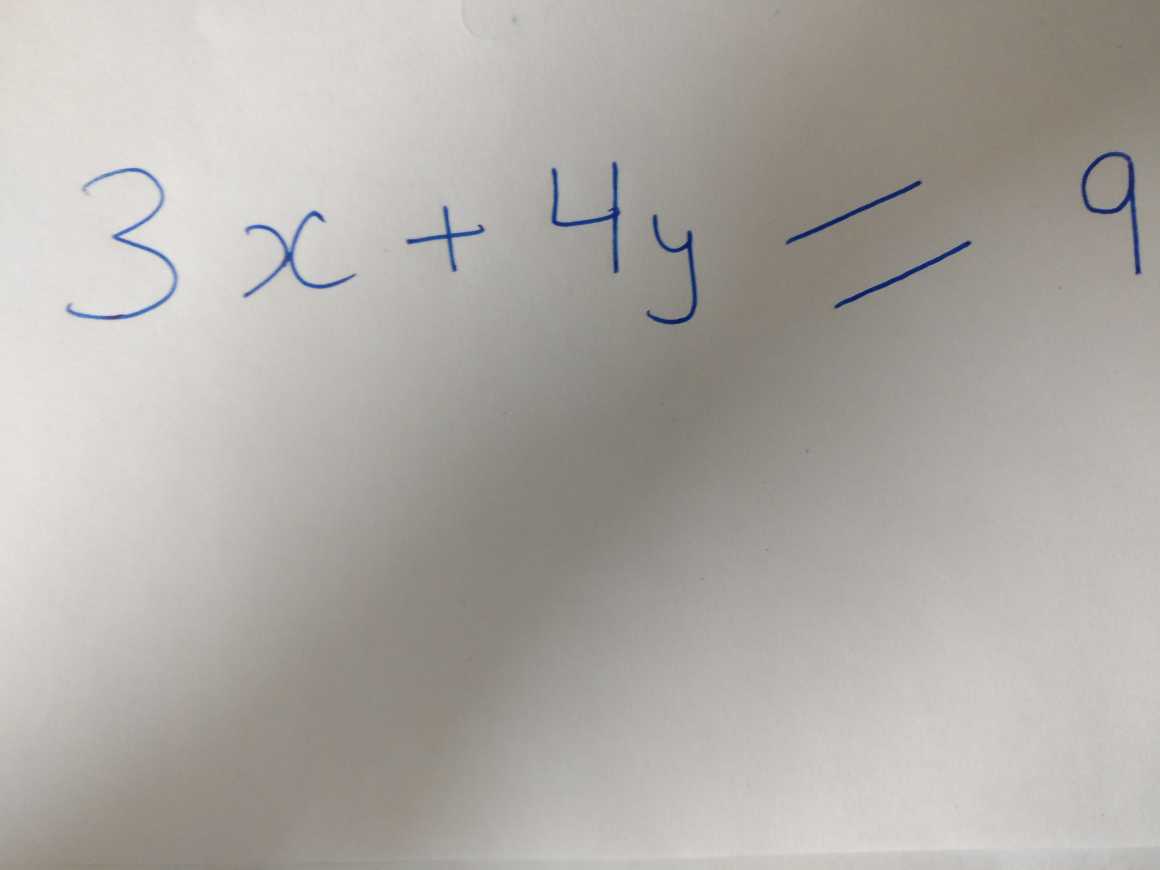 3x + 4y = 9